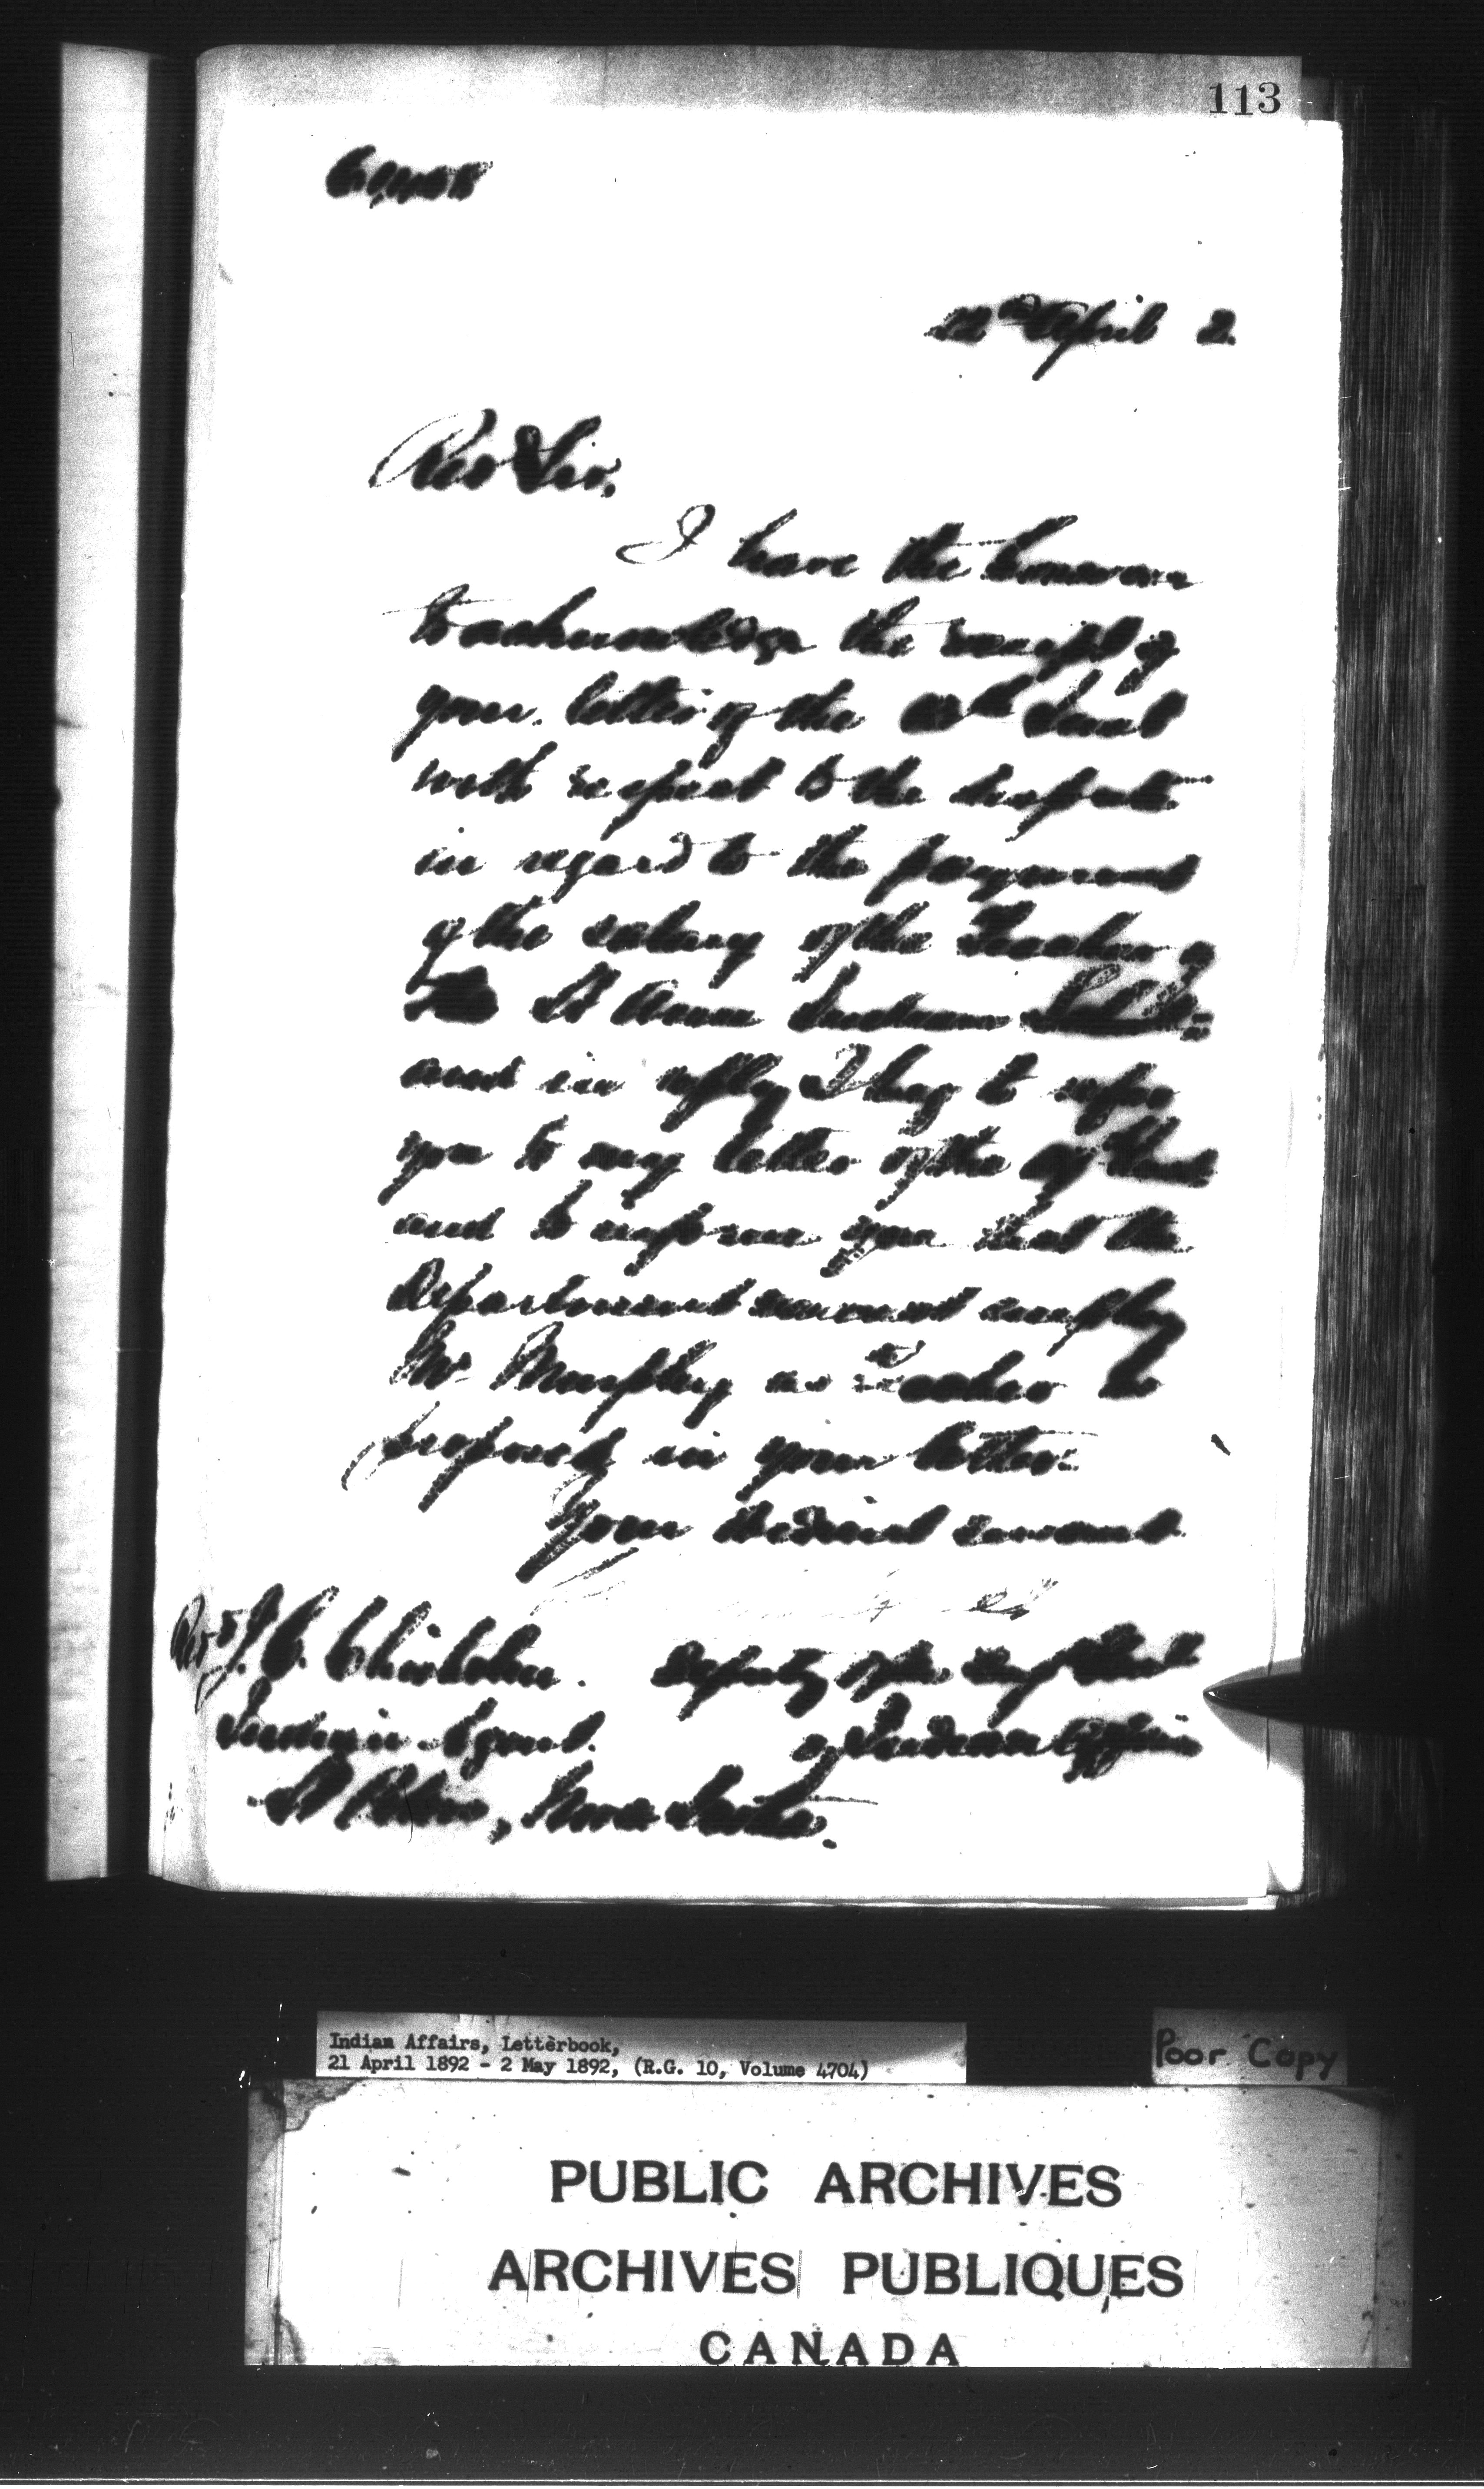 113
22nd April 2.
Revd Sir,
I have the honour
to acknowledge the receipt of
your letter of the inst
with respect to the dispute
in regard to the payment
of the salary of the Teacher of
the St Anne Indian School
and in reply I beg to refer
you to my letter of the inst
and to inform you that the
Department cannot employ
Mr. Murphy as Teacher as
proposed in your letter.
Your obedient servant
Revd J. C. Chisholm. Deputy of the Supt Genl
Indian Agent. of Indian Affairs
St Peters, Nova Scotia.
Indian Affairs, Letterbook,
21 April 1892 - 2 May 1892, (R.G. 10, Volume 4704)
Poor Copy
PUBLIC ARCHIVES
ARCHIVES PUBLIQUES
CANADA